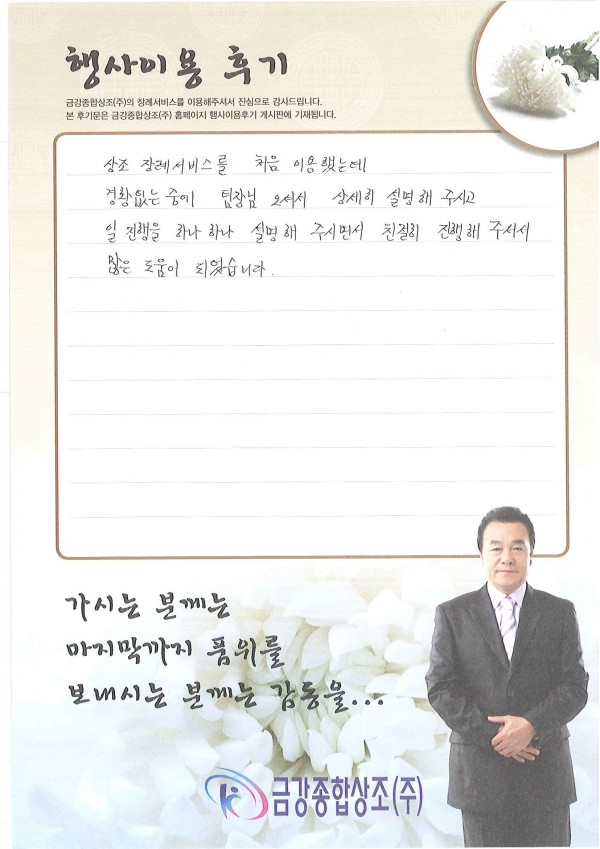 행사이용 후기
금강종합상조(주)의 장례서비스를 이용해주셔서 진심으로 감사드립니다.
본 후기문은 금강종합상조(주) 홈페이지 행사이용후기 게시판에 기재됩니다.
상조 장례서비스를 처음 이용했는데
경황없는 중에 팀장님 오셔서 상세히 설명해 주시고
일 진행을 하나 하나 설명해 주시면서 친절히 진행해 주셔서
많은 도움이 되었습니다.
가시는 분께는
마지막까지 품위를
보내시는 분께는 감동을...
금강종합상조(주)